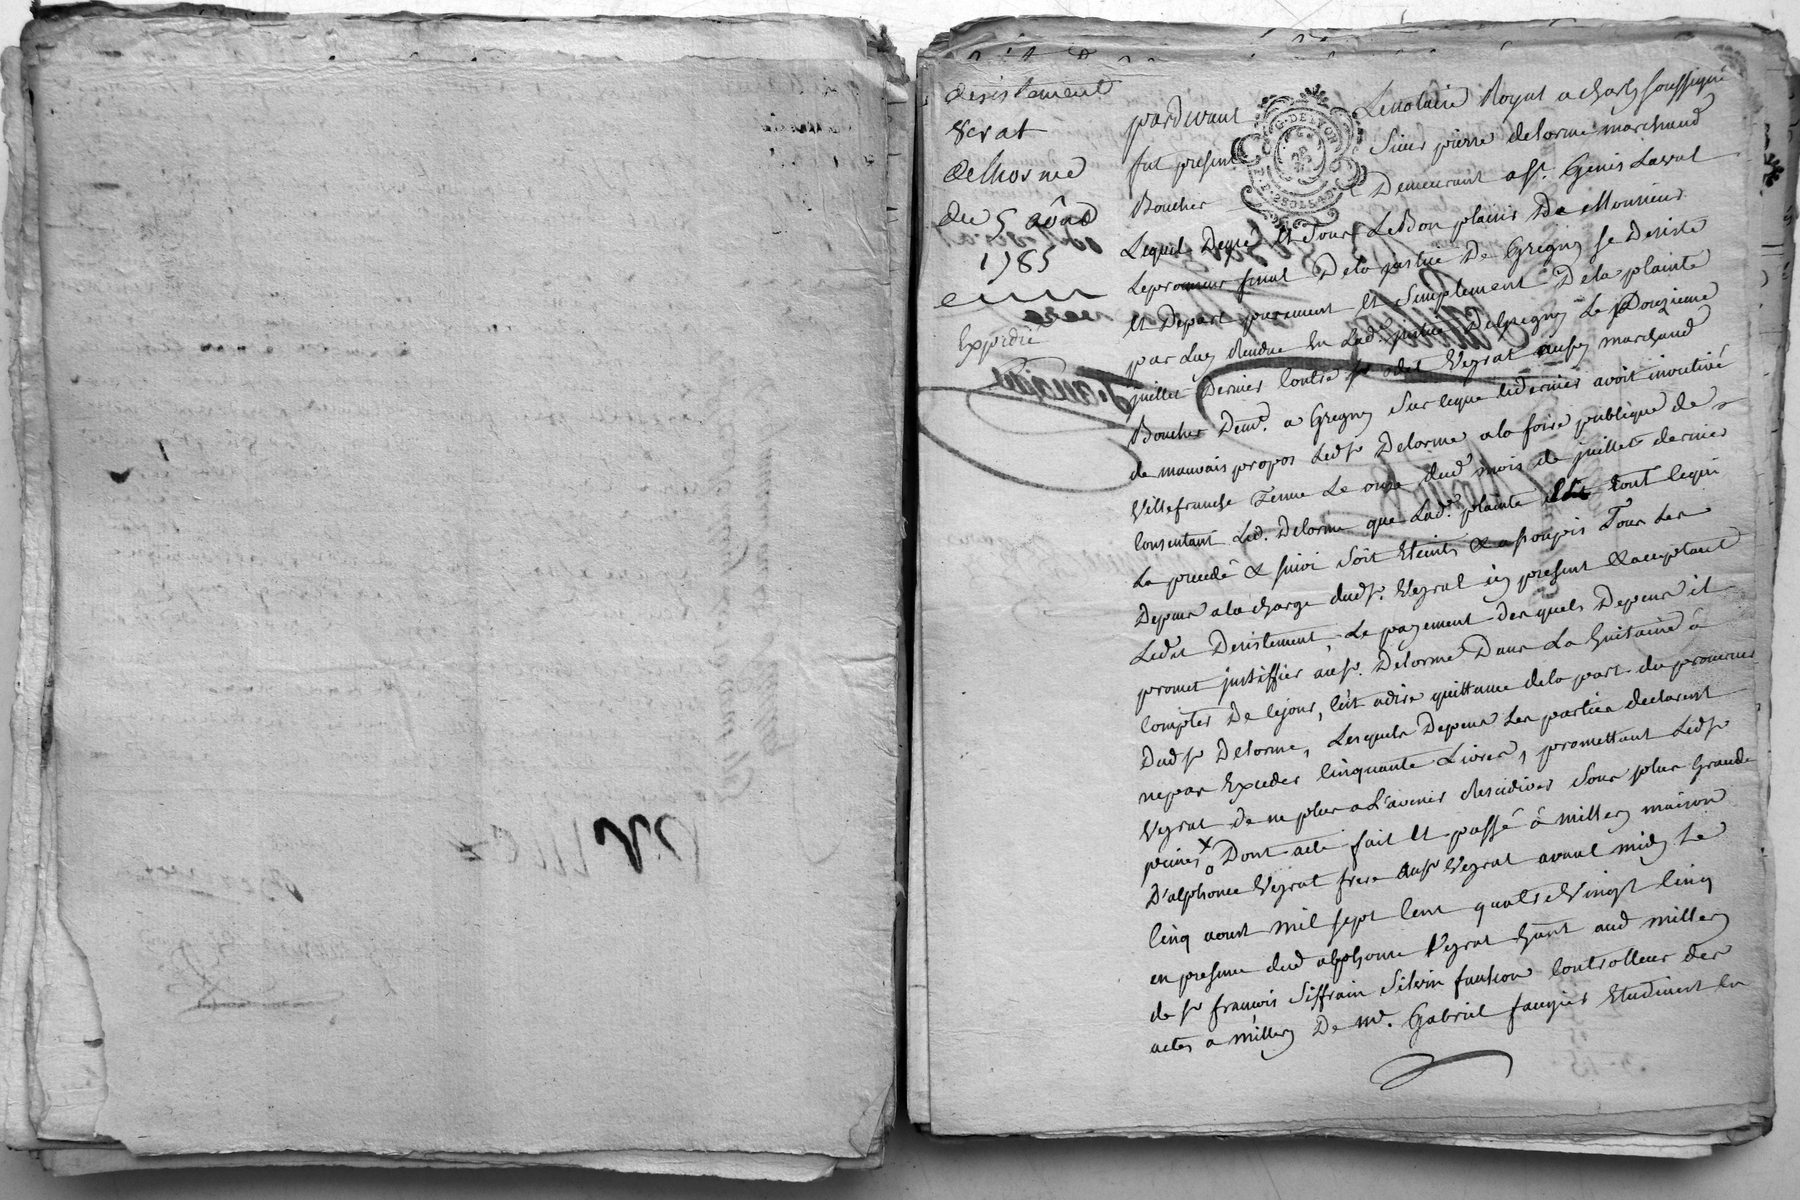 desistement
verat
delhosme
du 5 aôut
1785
Expédié
G. DE LYON
pardevant Lenotaire Royal a charly soussigné
fut present Sieur pierre delorme marchand
Boucher Demeurant a st. Genis Laval
Lequel Degré et sous Le Bon plaisir De Monsieur
Leprocureur fiscal Dela justice De Grigny se Desiste
et Depart purement et simplement Dela plainte
par Luy Rendue En Lad. justice De Grigny Le Douzieme
juillet Dernier Contre sr Veyrat aussy marchand
Boucher Demt. a Grigny sur leque lidernier avoit invectivé
de mauvais propos Ledsr Delorme ala foire publique de
Villefranche Tenue Le onze dud mois de juillet dernier
Consentant Led. Delorme que Lad. plainte et tout cequi
La precedé & suivi soit Eteints & assoupis Tous Les
Depens ala charge dudsr. Veyrat icy present & acceptant
Ledit Desistement Le payement desquels Depens il
promet justiffier ausr. Delorme Dans La huitaine à
Compter De cejour, c'est adire quittance dela part du procureur
Dudsr Delorme, Lesquels Depens Les parties declarent
nepas Exceder Cinquante Livres, promettant Ledsr
Veyrat de ne plus a L'avenir Rescidiver sous plus Grande
peines x Dont acte fait et passé à millery maison
D'alphonce Veyrat frere dusr Veyrat avant midy Le
Cinq aoust mil sept Cent quatre Vingt Cinq
en presence dud alphonce Veyrat hant aud millery
de sr françois Siffrain Silvin Controlleur des
actes a millery De me. Gabriel fauques Etudiant En